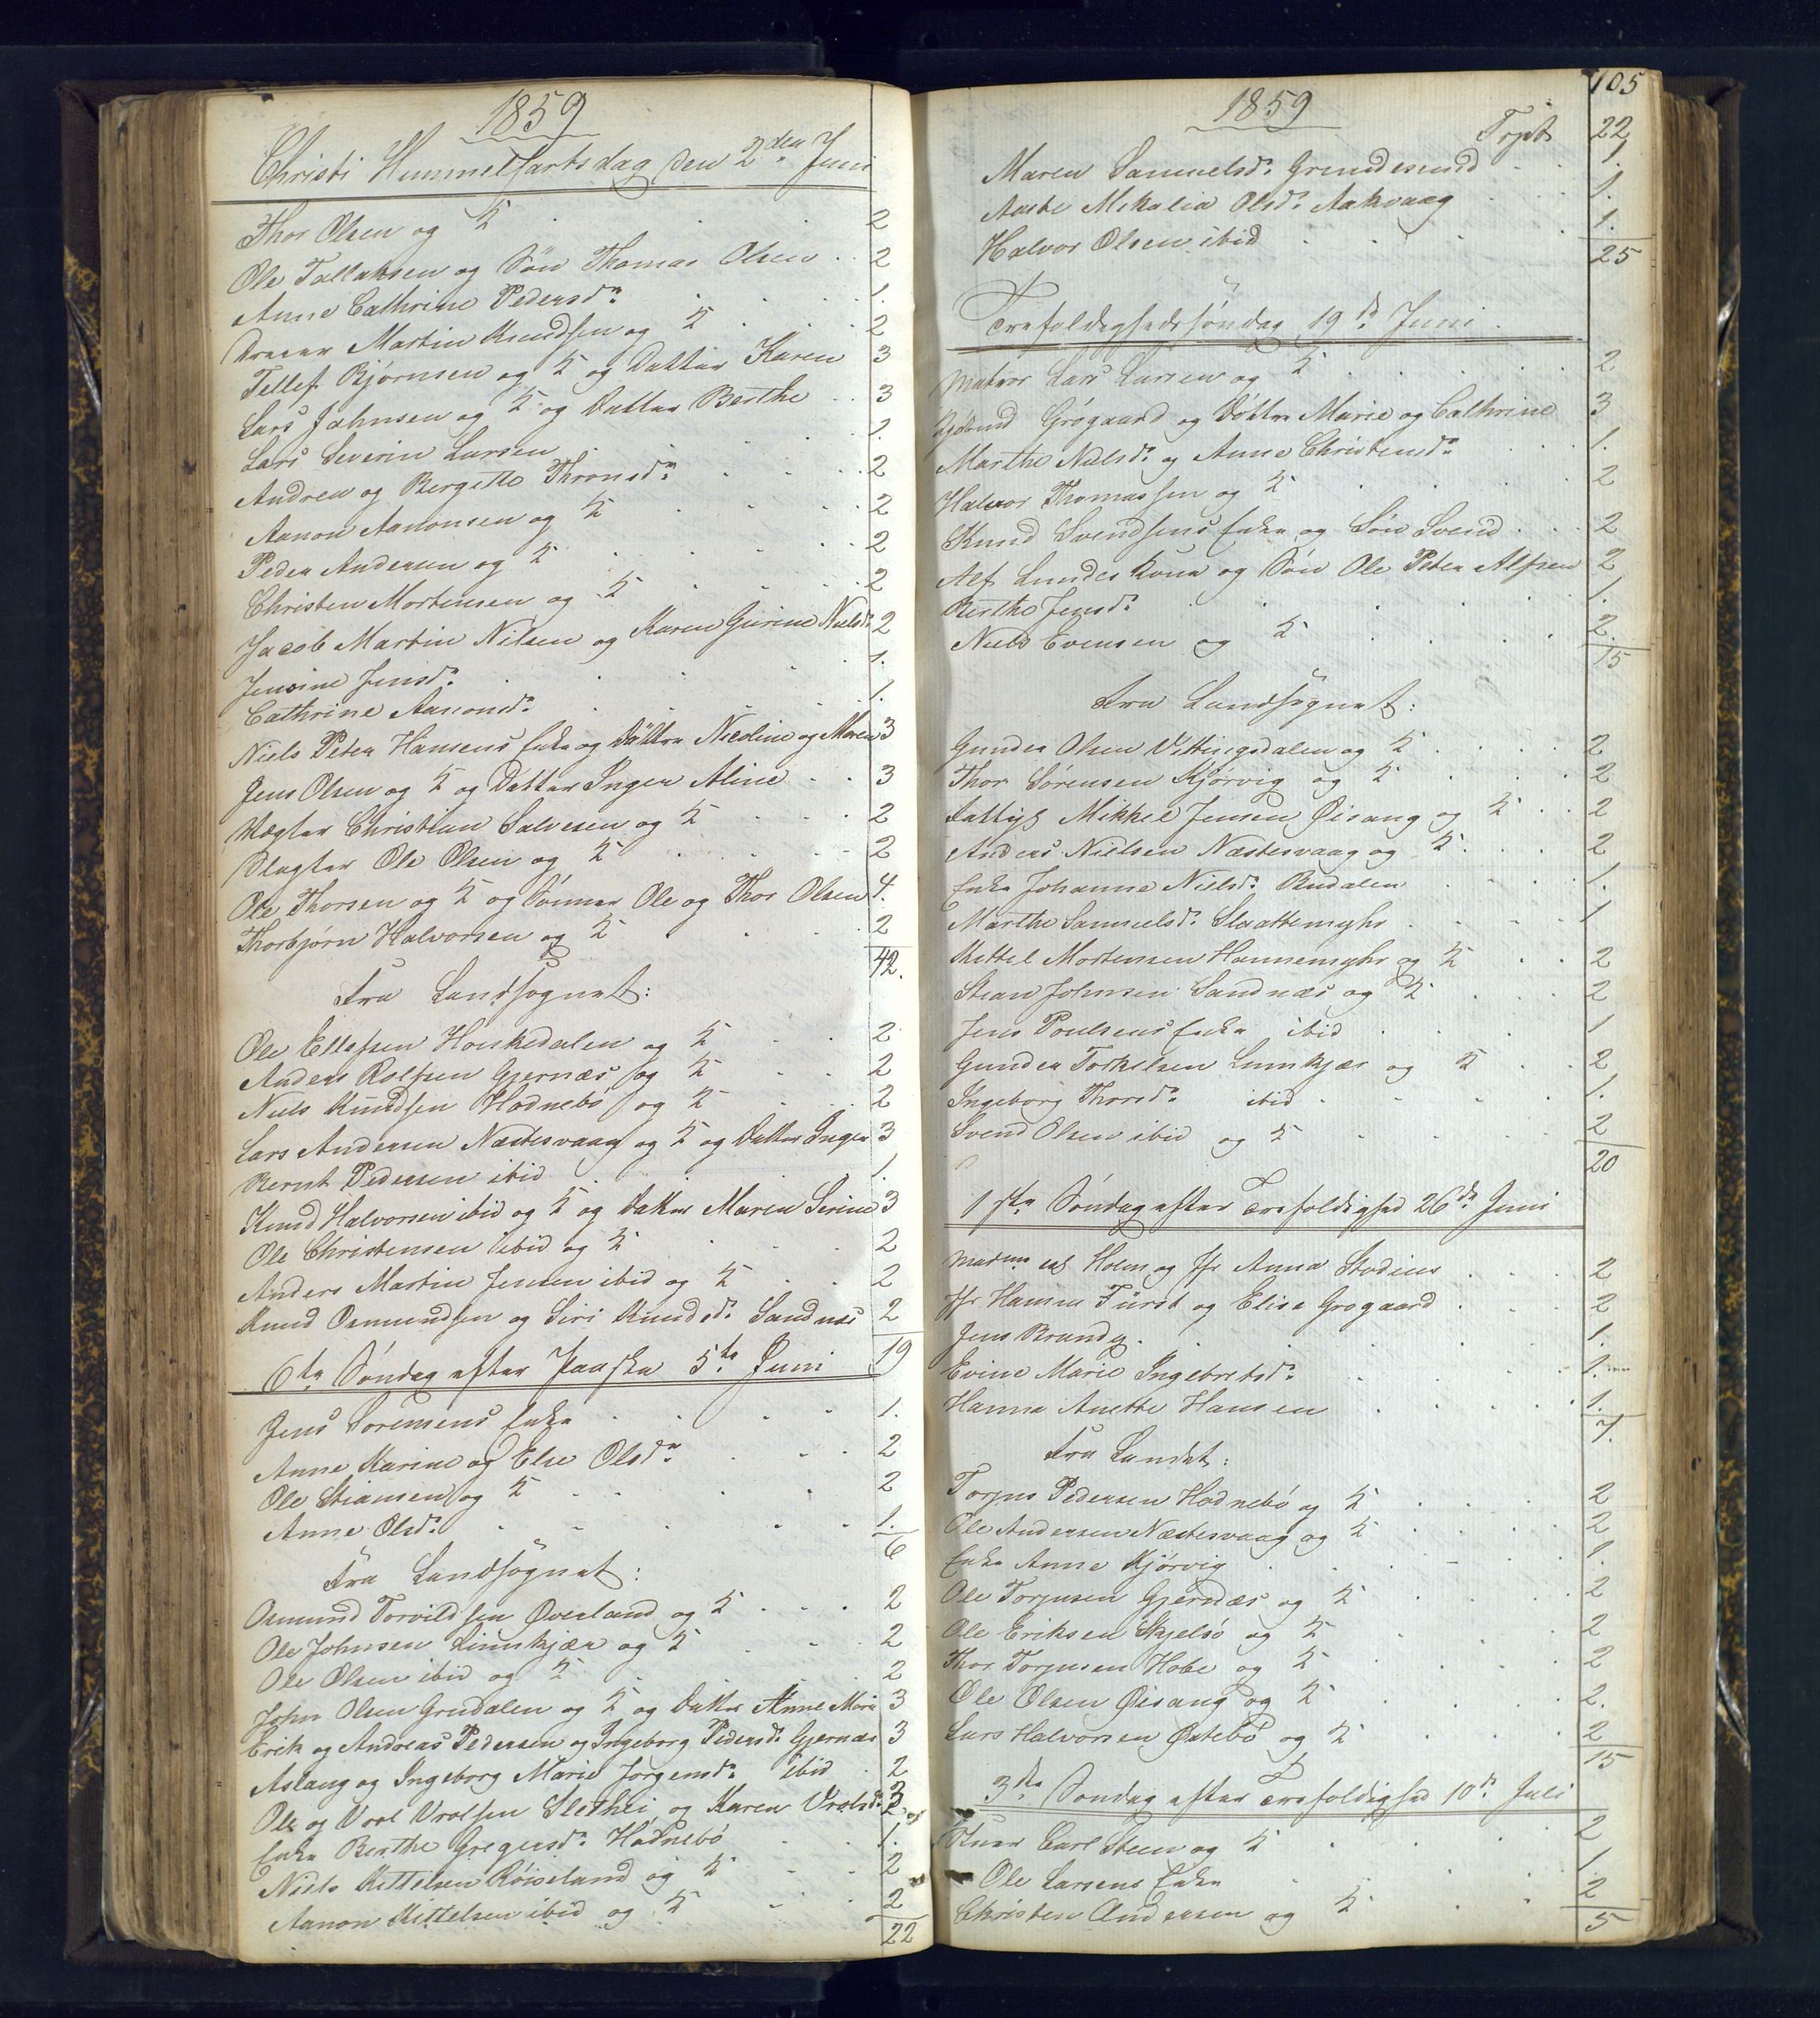 1859
Christi Himmelfartsdag den 2den Juni
Thor Olsen og K 2
Ole Tallaksen og Søn Thomas Olsen 2
Anne Cathrine Pedersdr 1.
Martin Knudsen og K 2
Tellef Bjørnsen og K og Datter Karen 3
Lars Jahnsen og K og Datter Berthe 3
Lars Severin Larsen 1.
Andrea og Bergitte Thronsdr 2
Aanon Aanonsen og K 2
Peder Andersen og K 2
Christen Mortensen og K 2
Jacob Martin Nilsen og Karen Gurine Nielsdr 2
Jensine Jensdr 1.
Cathrine Aanonsdr 1.
Niels Peter Hansens Enke og Døttre Nicoline og Maren 3
Jens Olsen og K og Datter Inger Aline 3
Vægter Christian Salvesen og K 2
Slagter Ole Olsen og K 2
Ole Thorsen og K og Sønner Ole og Thor Olsen 4.
Thorbjørn Halvorsen og K 2
42.
Fra Landsognet:
Ole Ellefsen Haukedalen og K 2
Anders Rolfsen Gjernæs og K 2
Niels Knudsen Hødnebø og K 2
Lars Andersen Næstesvaag og K og Datter Inger 3
Bernt Pedersen ibid 1.
Knud Halvorsen ibid og K og Datter Maren Serine 3
Ole Christensen ibid og K 2
Anders Martin Jensen ibid og K 2
Knud Osmundsen og Siri Knudsdr Sandnæs 2
19
6te Søndag efter Paaske 5te Juni
Jens Sørensens Enke 1.
Anne Karine og Else Olsdr 2
Ole Stiansen og K 2
Anne Olsdr 1.
6
Fra Landsognet:
Osmund Torvildsen Øverland og K 2
Ole Johnsen Linnkjær og K 2
Ole Olsen ibid og K 2
John Olsen Grudalen og K og Datter Anne Marie 3
Erik og Andreas Pedersen og Ingeborg Pedersdr Gjernæs 3
Aslaug og Ingeborg Marie Jørgensdr ibid 2
Ole og Vrol Vrolsen Slethei og Karen Vrolsdr 3
Enke Berthe Gregersdr Hødnebø 1.
Niels Kittelsen Røiseland og K 2
Aanon Kittelsen ibid og K 2
22
105
1859
Trpt 22
Maren Samuelsdr Grundesund 1.
Aaste Mikalia Olsdr Aakvaag 1.
Halvor Olsen ibid 1.
25
Trefoldighedssøndag 19de Juni
Matros Lars Larsen og K 2
Grøgaard og Døttre Marie og Cathrine 3
Marthe Nielsdr og Anne Christensdr 1.
Halvor Thomassen og K 2
Knud Svendsens Enke og Søn Svend 2
Alf Lundes Kone og Søn Ole Peter Alfsen 2
Berthe Jensdr 1.
Niels Evensen og K 2.
15
Fra Landsognet:
Gunder Olsen Vittingsdalen og K 2
Thor Sørensen Kjørvig og K 2
Fattigf Mikkel Jensen Øisang og K 2
Anders Nielsen Næstesvaag og K 2
Enke Johanne Nielsdr Rudalen 1.
Marthe Samuelsdr Slaattemyhr 1
Kittel Mortensen Hannemyhr og K 2
Stian Johnsen Sandnæs og K 2
Jens Poulsens Enke ibid 1
Gunder Torkelsen Linnkjær og K 2
Ingeborg Thorsdr ibid 1.
Svend Olsen ibid og K 2
20
1ste Søndag efter Trefoldighed 26de Juni
Madme Holm og Jfr Anna Stadius 2
Jfr Hanna Fürst og Elise Grøgaard 2
Jens Brandy 1.
Evine Marie Ingebretsdr 1.
Hanna Anette Hansen 1.
7.
Fra Landet:
Torjus Pedersen Hødnebø og K 2
Ole Andersen Næstesvaag og K 2
Enke Anne Kjørvig 1.
Ole Torjusen Gjernæs og K 2
Ole Eriksen Skjelsø og K 2
Thor Torjusen Hobe og K 2
Ole Olsen Øisang og K 2.
Lars Halvorsen Østebø og K 2
15
3die Søndag efter Trefoldighed 10de Juli
Carl Steen og K 2
Ole Larsens Enke 1.
Christen Andersen og K 2
5